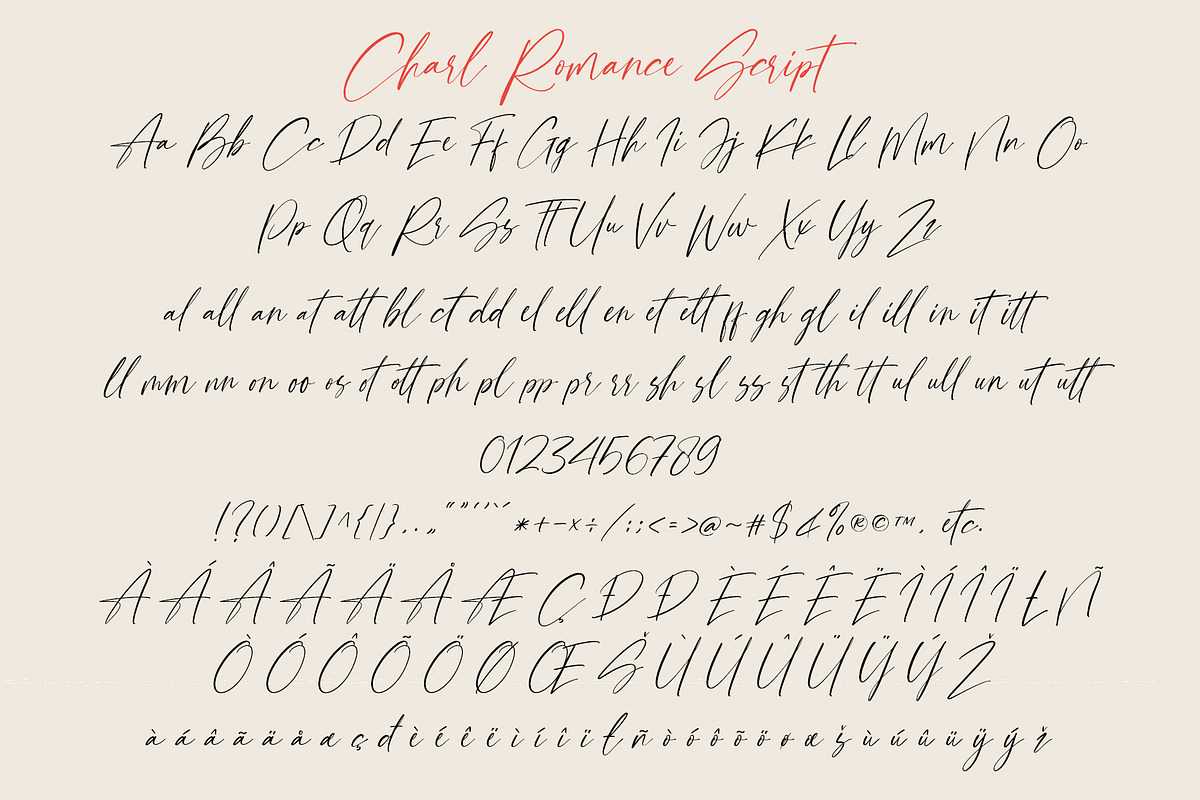 Charl Romance Script
Aa Bb Cc Dd Ee Ff Gg Hh Ii Jj Kk Ll Mm Nn Oo
Pp Qq Rr Ss Tt Uu Vv Ww Xx Yy Zz
al all an at att bl ct dd el ell en et ett ff gh gl il ill in it itt
ll mm nn on oo os ot ott ph pl pp pr rr sh sl ss st th tt ul ull un ut utt
0123456789
!?()[\]^{|}..„“”‘’` *+-×÷/:;<=>@~#$&%®©™, etc.
À Á Â Ã Ä Å Æ Ç Ð Đ È É Ê Ë Ì Í Î Ï Ł Ñ
Ò Ó Ô Õ Ö Ø Œ Š Ù Ú Û Ü Ÿ Ý Ž
à á â ã ä å æ ç đ è é ê ë ì í î ï ł ñ ò ó ô õ ö ø œ š ù ú û ü ÿ ý ž